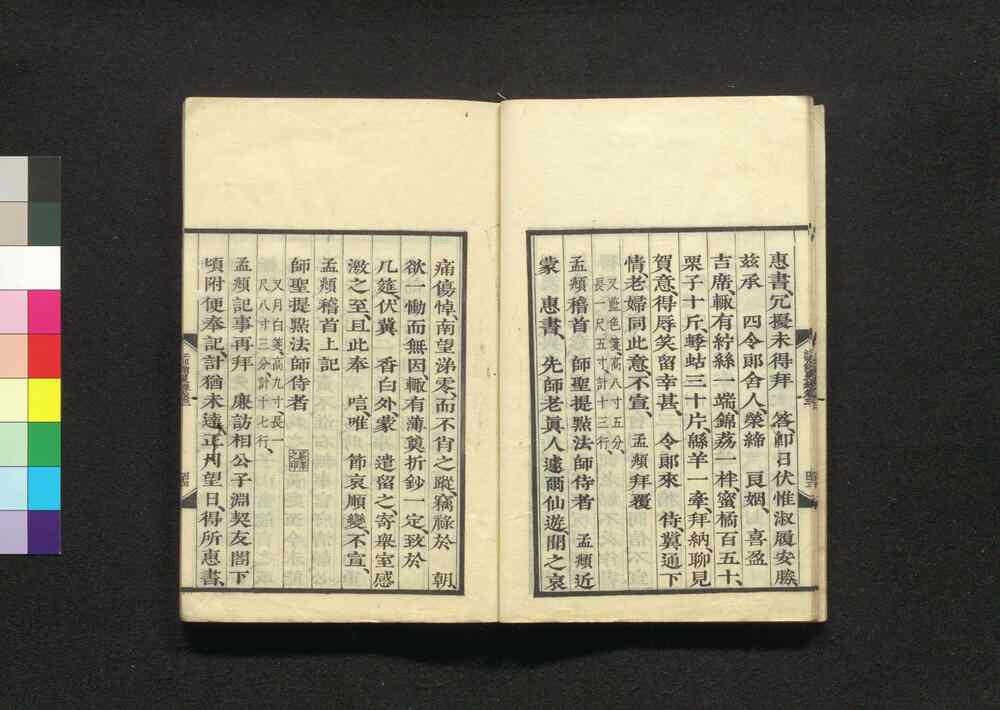 惠書冗擾未得拜　答、卽日伏惟淑履安勝、
玆承　四令郎舍人、榮締　良姻、喜盈
吉席、輙有紵絲一端、錦荔一柈、蜜橘百五十、
栗子十斤、蝤蛄三十片、緜羊一牽、拜納、聊見
賀意、得辱笑留幸甚、　令郎來　侍冀通下
情、老婦同此意、不宣、　孟頫拜覆
又藍色箋高八寸五分、
長一尺五寸、計十三行、
孟頫稽首　師聖提㸃法師侍者　孟頫近
蒙　惠書、　先師老眞人遽爾仙遊、聞之哀
痛傷悼、南望涕零、而不肖之蹤、竊祿於　朝、
欲一慟而無因、輙有薄奠折鈔一定、致於
几筵、伏冀　一香白外、蒙　遺留之寄、舉室感
激之至、且此奉　唁、唯　節哀順變、不宣、
孟頫稽首上記
師聖提㸃法師侍者
又月白箋、高九寸、長一
尺八寸三分、計十七行、
孟頫記事再拜　廉訪相公子淵契友閤下
頃附便奉記、計猶未達、正月望日、得所惠書、